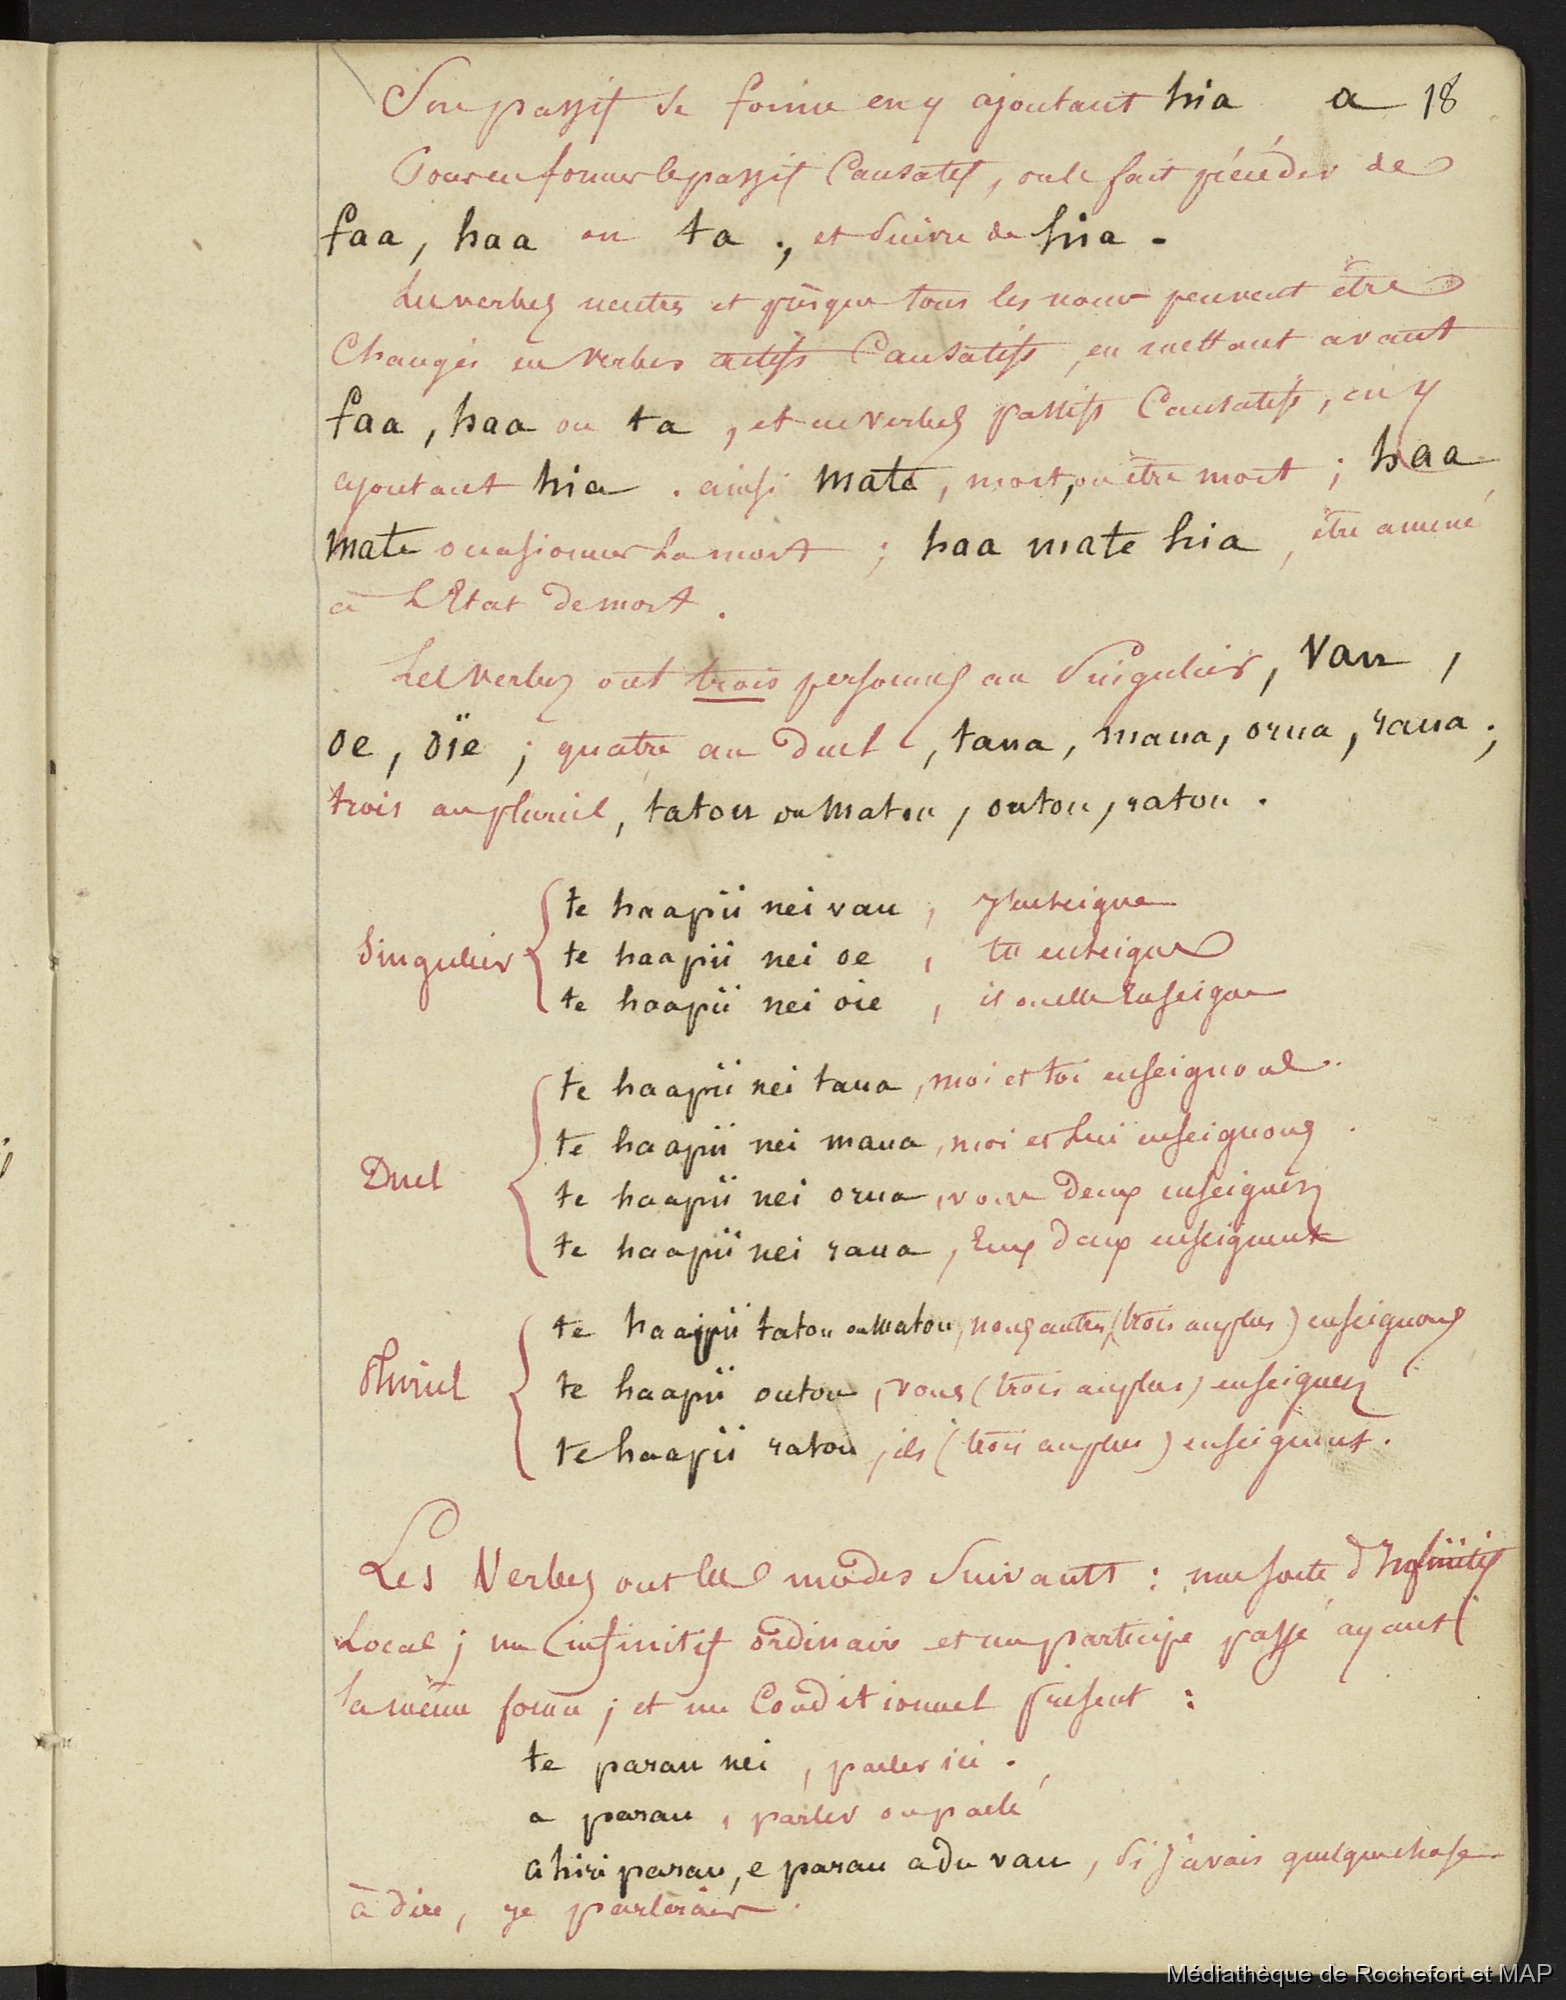 Son passif se forme en y ajoutant hia a 18
Pour en former le passif Causatif, on le fait précéder de
faa, haa ou ta ., et suivre de hia.
Les verbes neutres et presque tous les noms peuvent être
Changés en verbes actifs Causatifs, en mettant avant
faa, haa ou ta, et en verbes passifs Causatifs, en y
ajoutant hia. ainsi mate, mort, ou être mort ; haa
mate occasionner la mort ; haa mate hia, être amené
à L'Etat de mort.
Les verbes ont trois personnes au Singulier, Vau,
oe, oïe ; quatre au duel, taua, maua, orua, raua ;
trois au pluriel, tatou ou matou, outou, ratou.
Singulier
te haapii nei vau, j'enseigne
te haapii nei oe, tu enseignes
te haapii nei oie, il ou elle Enseigne
Duel
te haapii nei taua, moi et toi enseignons.
te haapii nei maua, moi et Lui enseignons.
te haapii nei orua, vous Deux enseignez
te haapii nei raua, Eux deux enseignent
Pluriel
te haapii tatou ou matou, nous autres, (trois au plus) enseignons
te haapii outou, vous (trois au plus) enseignez
te haapii ratou, ils (trois au plus) enseignent.
Les Verbes ont les modes Suivants : une sorte d'Infinitif
Local ; un infinitif ordinaire et un participe passé ayant
la même forme ; et un Conditionnel présent :
te parau nei, parler ici.
a parau, parler ou parlé
ahiri parau, e parau adu vau, si j'avais quelque chose
à dire, je parlerais.
Médiathèque de Rochefort et MAP